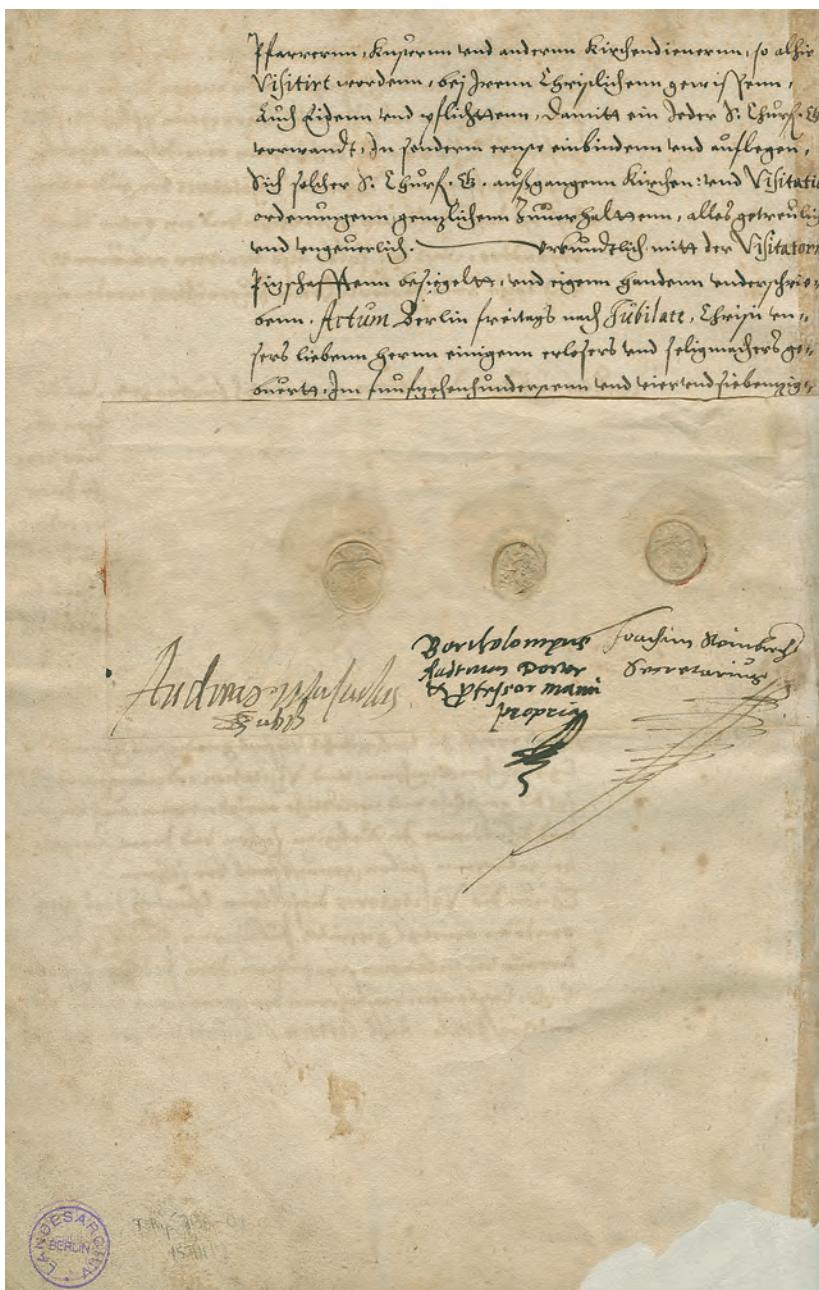 Pfarrernn, Küsternn vnd andernn Kirchendienernn, so alhie
Visitirt wordenn, bej Irenn Christlichenn gewissenn,
Auch Eidenn vnd pflichttenn, damitt ein Jeder S. Churf. G.
vorwandt, In sonderm ernste einbindenn vnd auflegen,
Sich solcher S. Churf. G. außgangenn Kirchen: vnd Visitatio
ordenungenn gentzlichenn Zuuerhalttenn, alles getreulich
vnd vngeuerlich. Vrkundtlich mitt der Visitatorn
Pitzschafftenn besiegeltt, vnd eigenn handenn vnderschrie„
benn. Actum Berlin freitags nach Jubilate, Christi vn„
sers liebenn hernn einigenn erlosers vnd seligmachers ge„
buertt, Im funfzehenhundertenn vnd viervndsiebentzig„
Bartholomeus
Radtman Doctor
et Professor manu
propria
Joachim Steinbrech
Secretarius
LANDESARCHIV
BERLIN